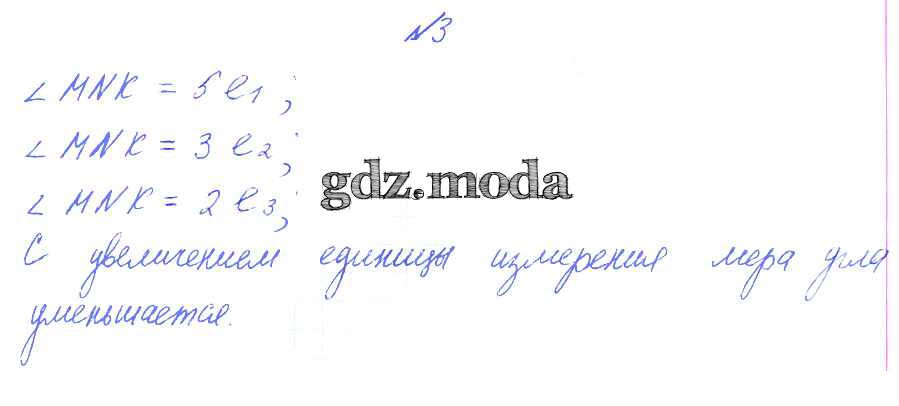 №3
∠ MNK = 5 e1;
∠ MNK = 3 e2;
gdz.moda
∠ MNK = 2 e3;
С увеличением единицы измерения мера угла
уменьшается.